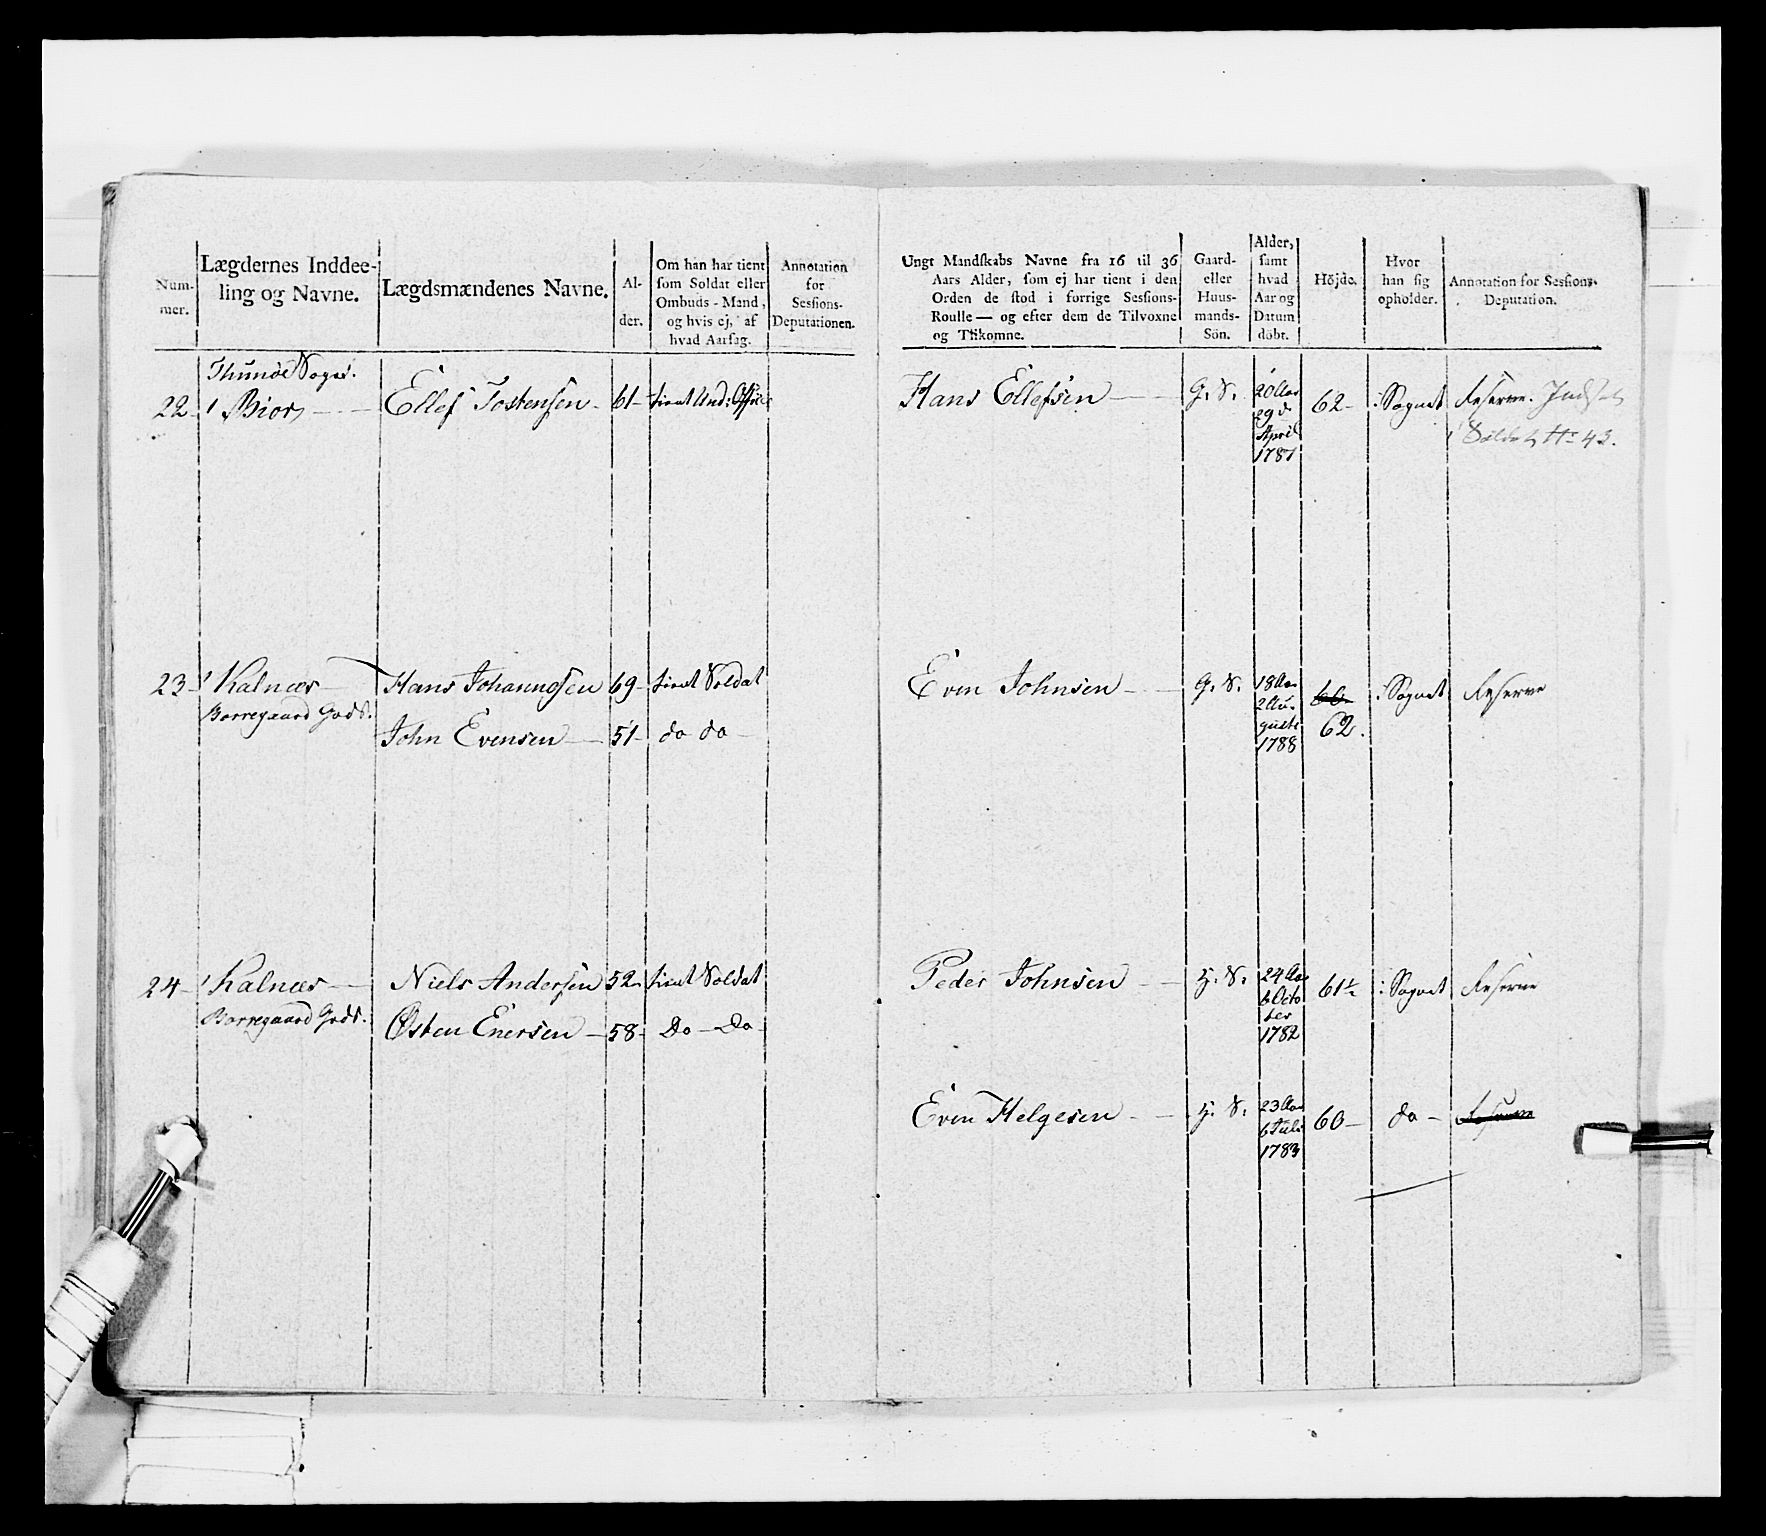 Num-
mer.
Lægdernes Inddee-
ling og Navne.
Lægdsmændenes Navne.
Al-
der.
Om han har tient
som Soldat eller
Ombuds-Mand,
og hvis ej, af
hvad Aarsag.
Annotation
for
Sessions-
Deputationen.
Ungt Mandskabs Navne fra 16 til 36
Aars Alder, som ej har tient i den
Orden de stod i forrige Sessions-
Roulle — og efter dem de Tilvoxne
og Tilkomne.
Gaard-
eller
Huus-
mands-
Sön.
Alder,
samt
hvad
Aar og
Datum
döbt.
Höjde.
Hvor
han sig
opholder.
Annotation for Sessions-
Deputation.
Thunöe Sogn.
22 - 1 Biorn - Ellef Tostensen - 61 - tient Und: Offic: Hans Ellefsen - G. S. 20 Aar 62 - i Sognet Reserve. Indsat
29d
April
1787
Soldat No 43.
23 - 1 Kalnæs - Hans Johannesen 69 - tient Soldat Even Johnsen - G. S. 18 Aar 60 i Sognet Reserve
Borregaard Gods.
2 Au-
gusti
1788
62.
John Evensen - 51 - do do -
24 - 1 Kalnæs - Niels Andersen 52 - tient Soldat Peder Johnsen - H. S. 24 Aar 61½ i Sognet Reserve
Borregaard Gods.
6 Octo
ber
1782
Østen Enersen - 58 - Do - Do -
Even Helgesen - H. S. 23 Aar 60 - do - Reserve
6 Juli
1783